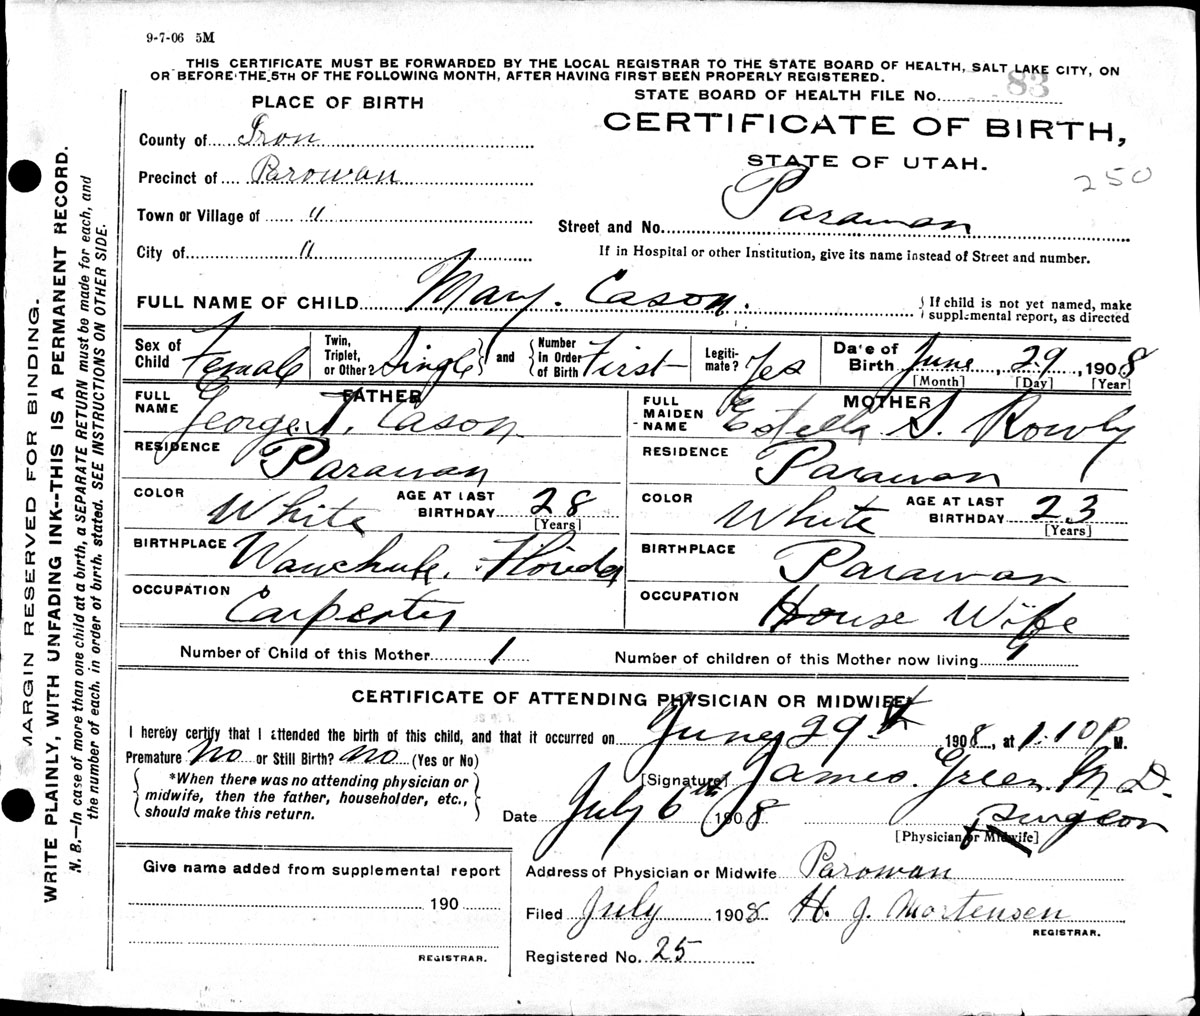 9-7-06 5M
THIS CERTIFICATE MUST BE FORWARDED BY THE LOCAL REGISTRAR TO THE STATE BOARD OF HEALTH, SALT LAKE CITY, ON
OR BEFORE THE 5TH OF THE FOLLOWING MONTH, AFTER HAVING FIRST BEEN PROPERLY REGISTERED.
STATE BOARD OF HEALTH FILE No. 83
PLACE OF BIRTH
CERTIFICATE OF BIRTH,
STATE OF UTAH.
250
County of Iron
Precinct of Parowan
Town or Village of "
City of "
Street and No. Parawan
If in Hospital or other Institution, give its name instead of Street and number.
FULL NAME OF CHILD Mary. Cason.
If child is not yet named, make
supplemental report, as directed
Sex of Child Female
Twin, Triplet, or Other Single and Number in Order of Birth First
Legitimate? Yes
Date of Birth June, 29, 1908
[Month] [Day] [Year]
FATHER
FULL NAME George T. Cason
RESIDENCE Parawan
COLOR White AGE AT LAST BIRTHDAY 28
[Years]
BIRTHPLACE Wauchula, Florida
OCCUPATION Carpenter
MOTHER
FULL MAIDEN NAME Estella S. Rowly
RESIDENCE Parawan
COLOR White AGE AT LAST BIRTHDAY 23
[Years]
BIRTHPLACE Parawan
OCCUPATION House Wife
Number of Child of this Mother 1
Number of children of this Mother now living 1
CERTIFICATE OF ATTENDING PHYSICIAN OR MIDWIFE
I hereby certify that I attended the birth of this child, and that it occurred on June 29th 1908, at 1.10 P. M.
Premature no or Still Birth? no (Yes or No)
*When there was no attending physician or
midwife, then the father, householder, etc.,
should make this return.
[Signature] James Green M.D.
Date July 6th 1908 Surgeon
[Physician or Midwife]
Give name added from supplemental report
190
REGISTRAR.
Address of Physician or Midwife Parowan
Filed July 1908 H. J. Mortensen
REGISTRAR.
Registered No. 25
MARGIN RESERVED FOR BINDING.
WRITE PLAINLY, WITH UNFADING INK--THIS IS A PERMANENT RECORD.
N. B.—In case of more than one child at a birth, a SEPARATE RETURN must be made for each, and
the number of each, in order of birth, stated. SEE INSTRUCTIONS ON OTHER SIDE.